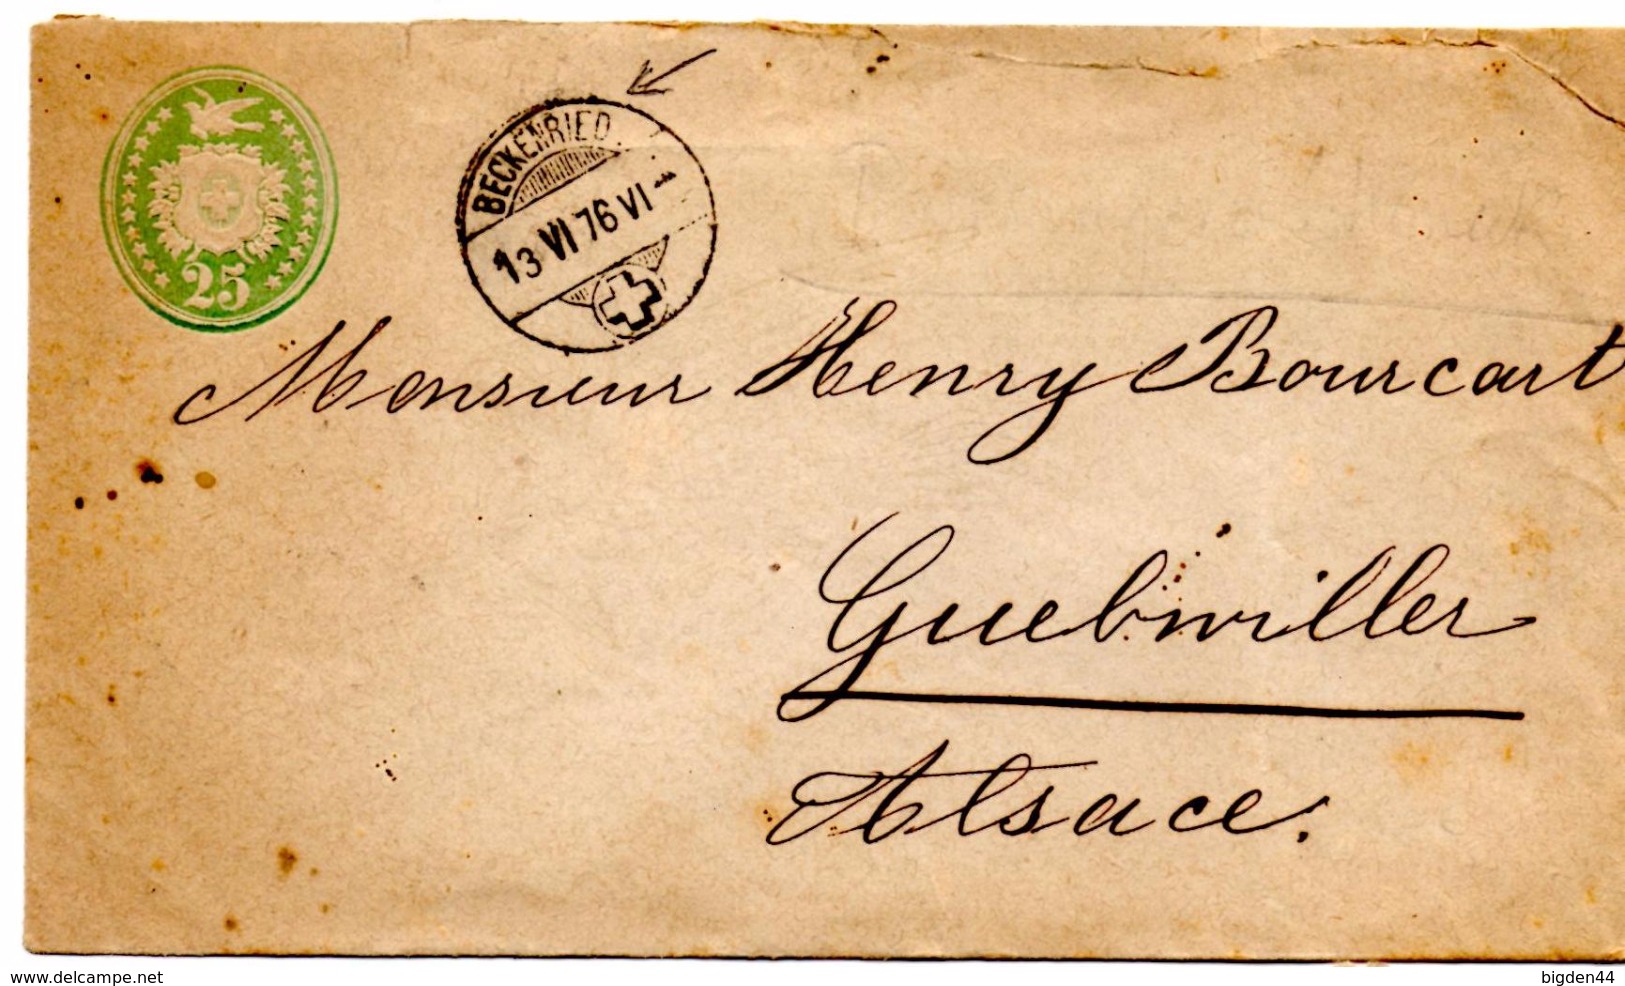 25
BECKENRIED
13 VI 76 VI
Monsieur Henry Bourcart
Guebwiller
Alsace.
www.delcampe.net
bigden44